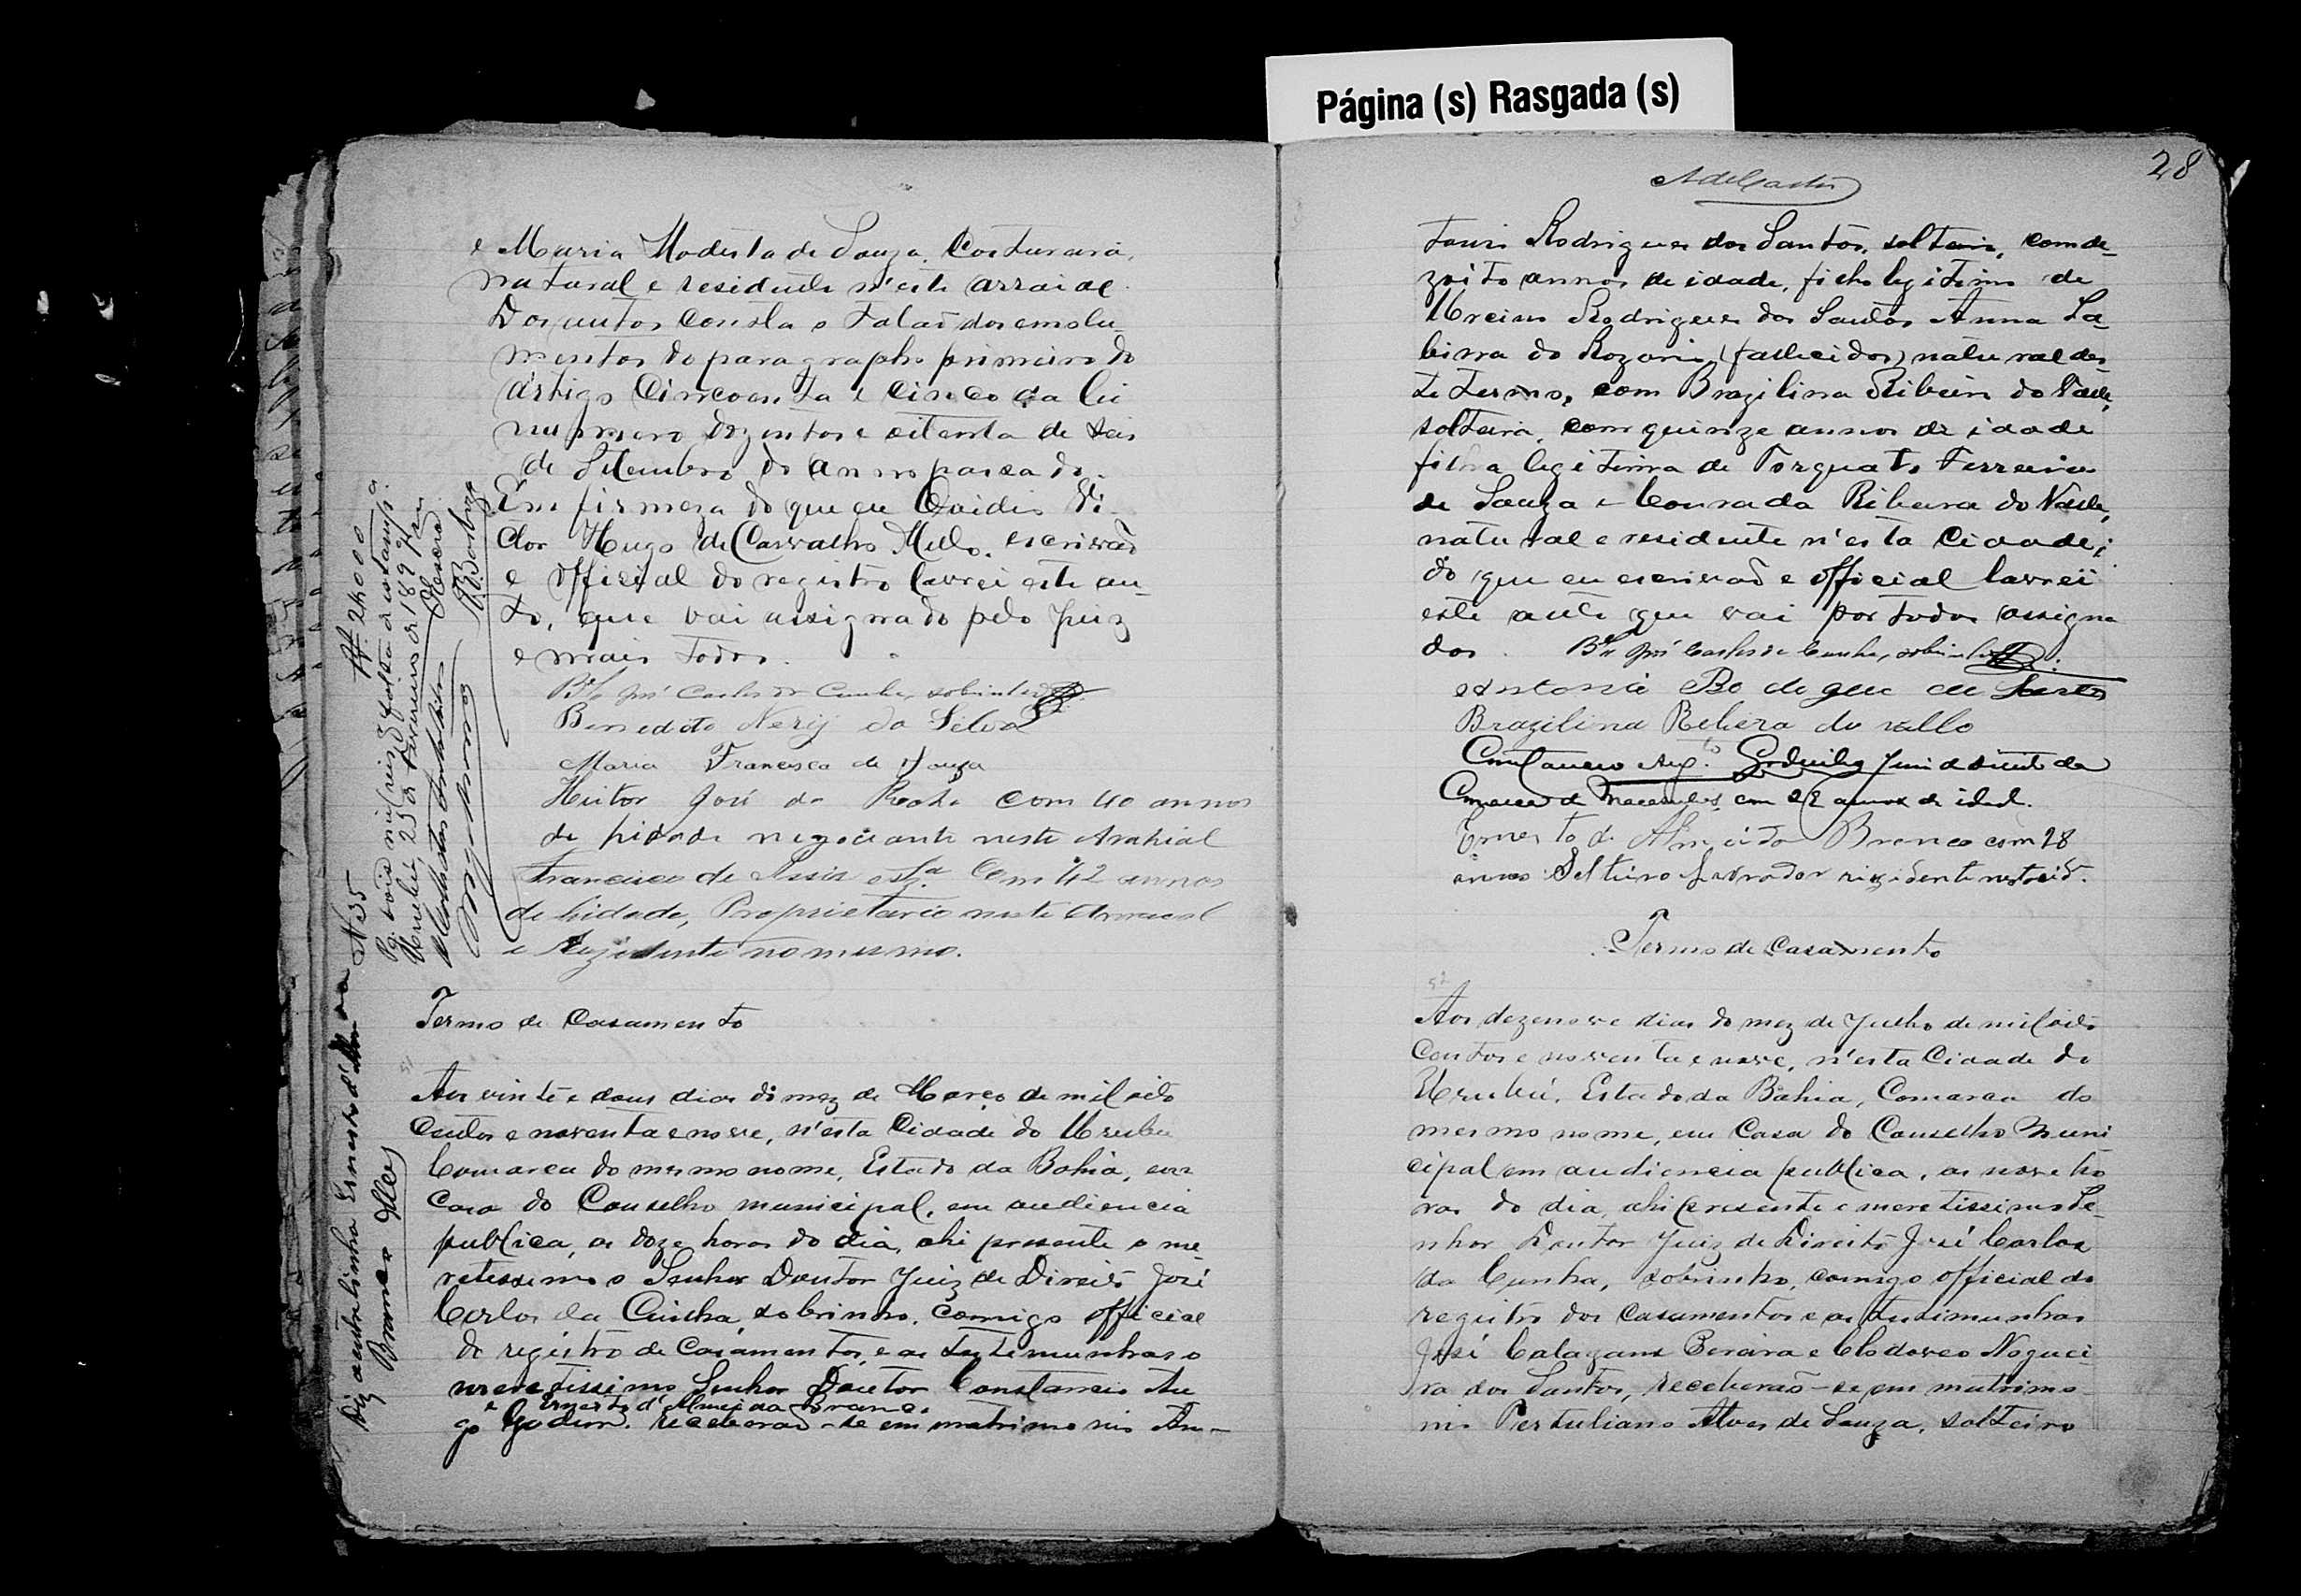 Página (s) Rasgada (s)
e Maria Modesta de Souza, Costurara,
natural e residente n'este arraial.
Dos autos consta o Talaõ dos emolu-
mentos do paragrapho primeiro do
artigo Cincoenta e cinco da lei
numero dozentos e oitenta de seis
de Setembro do anno passado.
Em firmeza do que eu Ovidio Vi-
ctor Hugo de Carvalho Mello, escrivaõ
e official do registro lavrei este au-
to, que vai assignado pelo Juiz
e mais todos.
Bel. José Carlos da Cunha, sobrinho
Benedito Nerij da Silva
Maria Francisca de Souza
Heitor José da Rocha com 40 annos
de hidade negociante neste Arahial
Francisco de Assis com 42 annos
de hidade, Proprietario neste Arraial
e Rezidente no mesmo.
Termo de Casamento
Aos vinte e dous dias do mez de Março de mil oito
centos e noventa e nove, n'esta Cidade do Urubu
Comarca do mesmo nome, Estado da Bahia, em
casa do Conselho municipal, em audiencia
publica, as doze horas do dia, ahi presente o me-
retessimo o Senhor Doutor Juiz de Direito José
Carlos da Cunha, sobrinho, comigo official
do registro de Casamentos, e as testemunhas o
meretissimo Senhor Doutor Constancio Au
e Ernesto d'Almeida Branco
go Godim. receberaõ-se em matrimonio An-
Nº 35
Rs 2$000
Pg. dois mil reis
Urubu, 25 de Fevereiro de 1897
Diz a entrelinha Ernesto d'Almeida
Branco
28
tonio Rodrigues dos Santos, solteiro, com de-
zoito annos de idade, filho legitimo de
Urcino Rodrigues dos Santos Anna Sa-
bina do Rozario (fallecidos) natural des-
te termo, com Brazilina Ribeiro do Valle,
solteira, com quinze annos de idade
filha legitima de Torquato Ferreira
de Souza e Conrada Ribeira do Valle,
natural e residente n'esta Cidade;
do que eu escrivaõ e official lavrei
este auto que vai por todos assigna
dos. Bel. José Carlos da Cunha, sobrinho
Antonio Ro de gue
Brazilina Rebera do vallo
Constancio Aug.to
Comarca de Macaubas, com annos de idade.
Ernesto de Almeida Branco com 28
annos Solteiro Lavrador rizidente nesta cid.
Termo de Casamento
Aos dezenove dias do mez de Julho de mil oito
centos e noventa e nove, n'esta Cidade do
Urubú, Estado da Bahia, Comarca do
mesmo nome, em Casa do Conselho Muni
cipal em audiencia publica, as nove ho
ras do dia, ahi presente o meretissimo Se-
nhor Doutor Juiz de Direito José Carlos
da Cunha, sobrinho, comigo official do
registro dos Casamentos e as testimunhas
José Calazans Pereira e Clodoveo Noguei-
ra dos Santos, receberaõ-se em matrimo-
nio Tertuliano Alves de Souza, solteiro